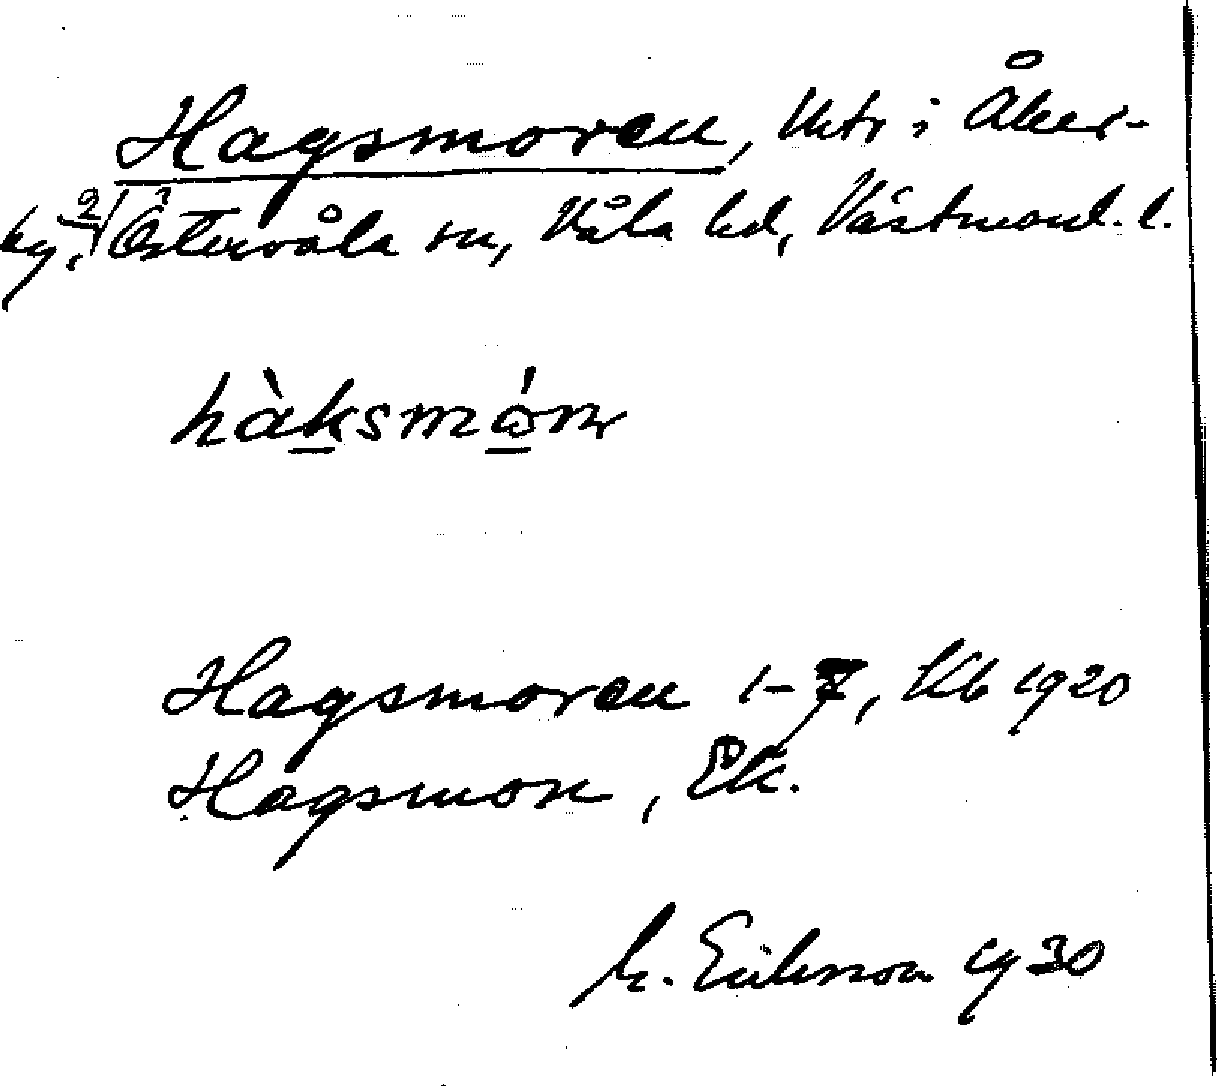 Hagsmoren, lhtr i Åker-
by, 2/ Östervåla sn, Våla hd, Västmanl. l.
hàksmón
Hagsmoren 1-7, Kb 1920
Hagsmon, Ek.
M. Eriksson 1930